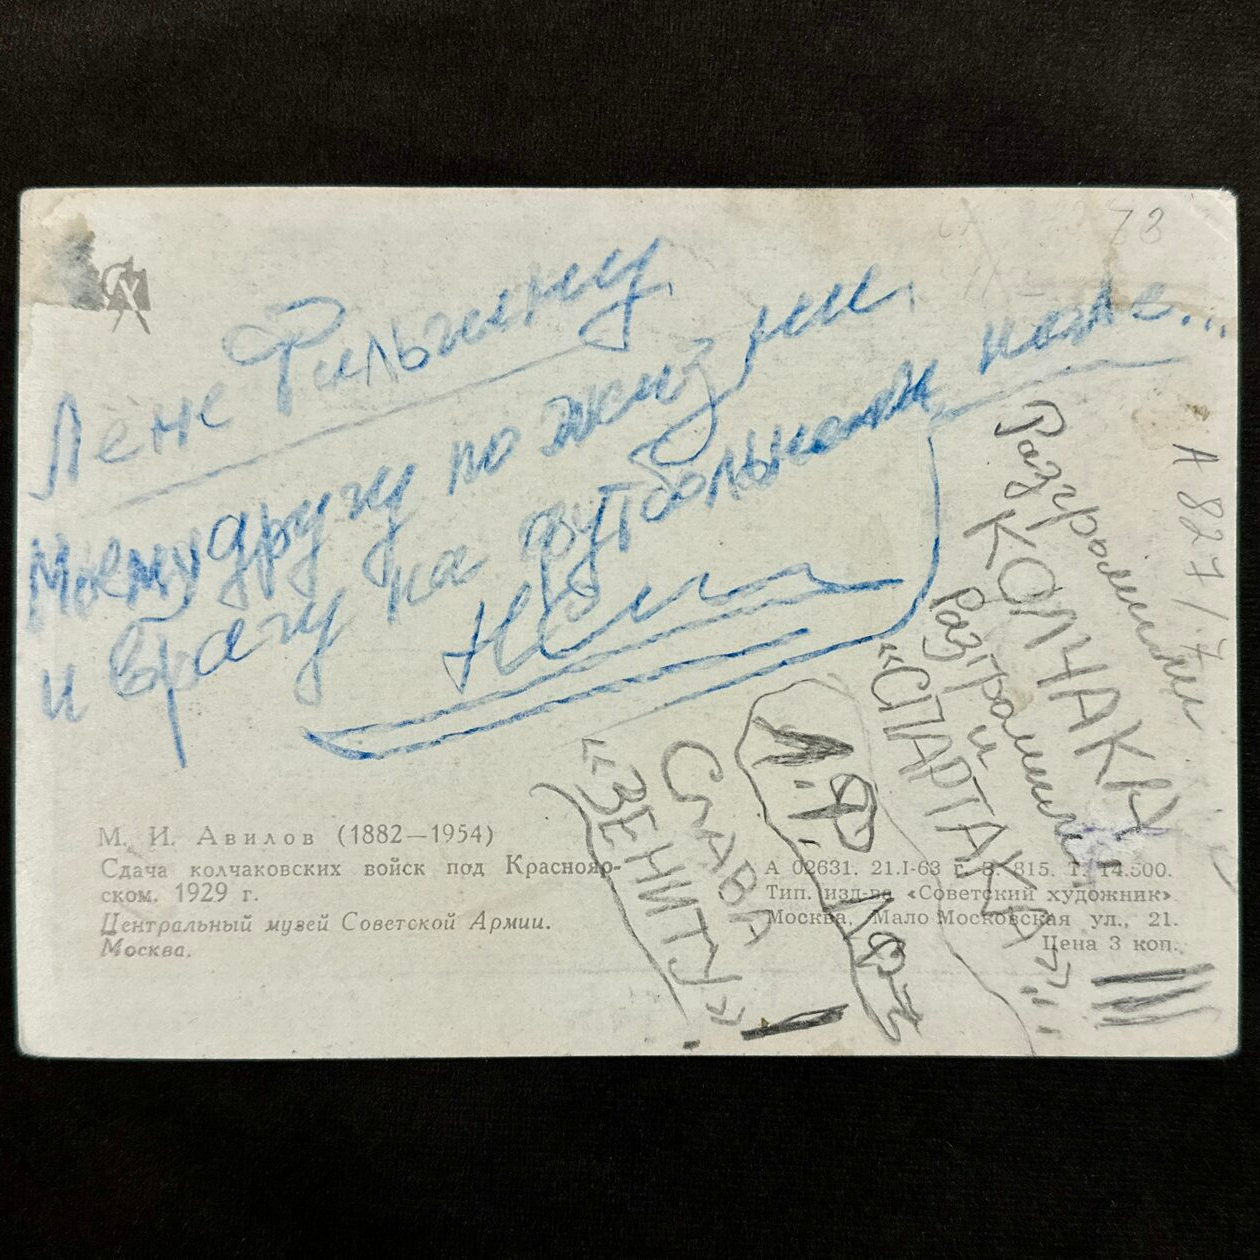 78
Лене Фильгину
Моему другу по жизни
и врагу на футбольном поле...
А 827/7
Разгромили
КОЛЧАКА
и
Разгромим
«СПАРТАКА»!!!
Л.Ф.
СЛАВА
«ЗЕНИТУ»!
М. И. Авилов (1882—1954)
Сдача колчаковских войск под Краснояр-
ском. 1929 г.
Центральный музей Советской Армии.
Москва.
А 02631. 21.I-63 г. З. 815. Т. 14.500.
Тип. изд-ва «Советский художник»
Москва, Мало Московская ул., 21.
Цена 3 коп.